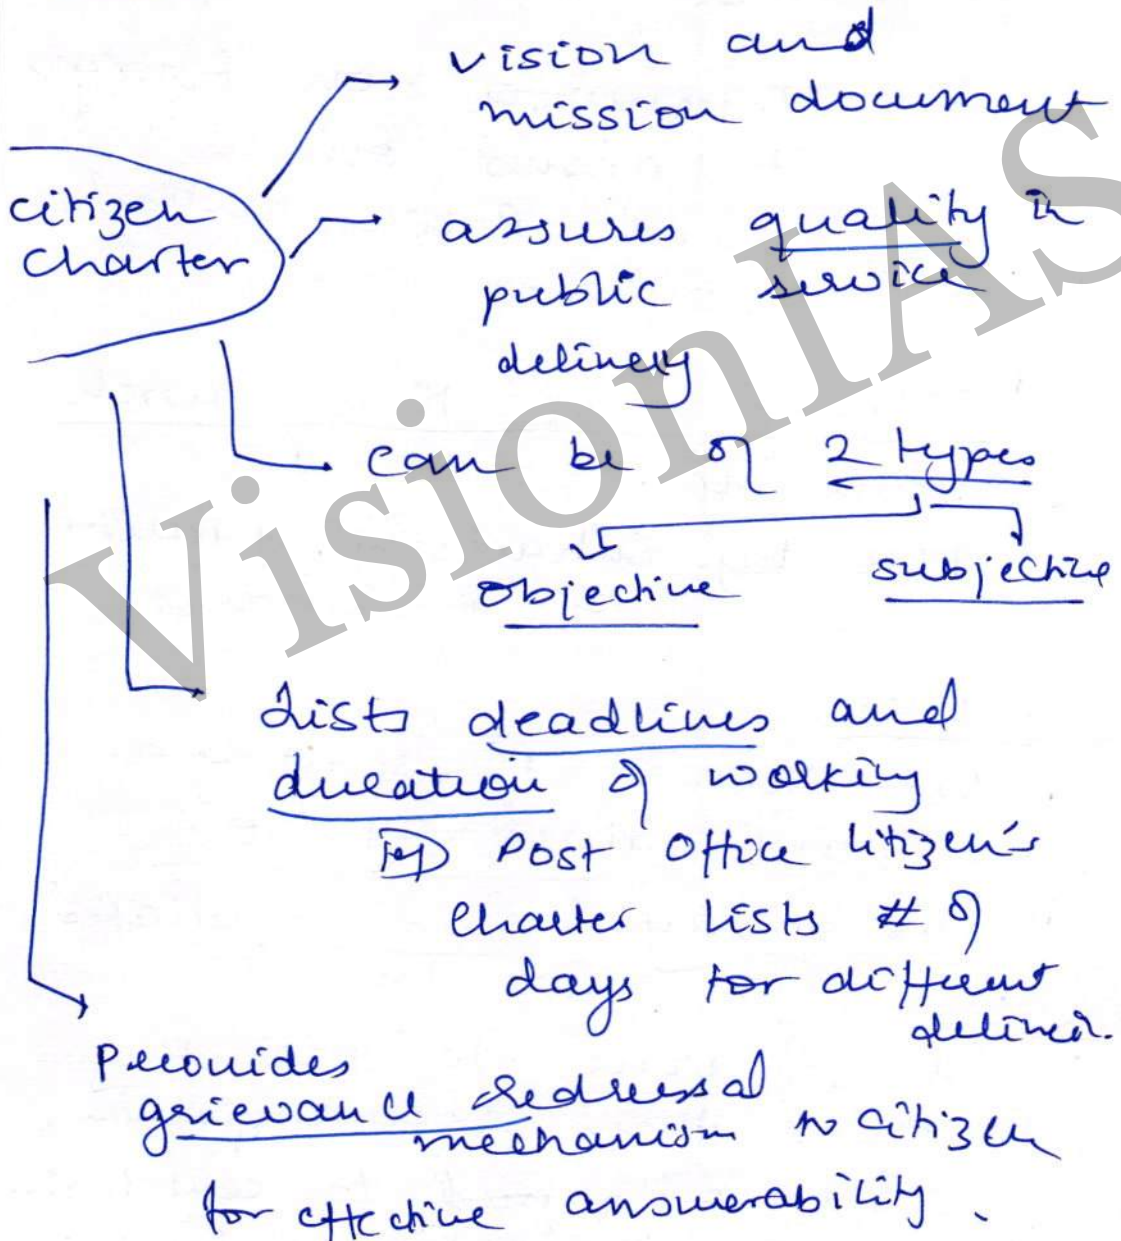 vision and
mission document
citizen
Charter
assures quality in
public service
delivery
can be of 2 types
objective
subjective
Lists deadlines and
duration of working
eg Post Office Citizen's
Charter lists # of
days for different
Provides
grievance redressal
mechanism to citizen
for effective answerability.
VisionIAS